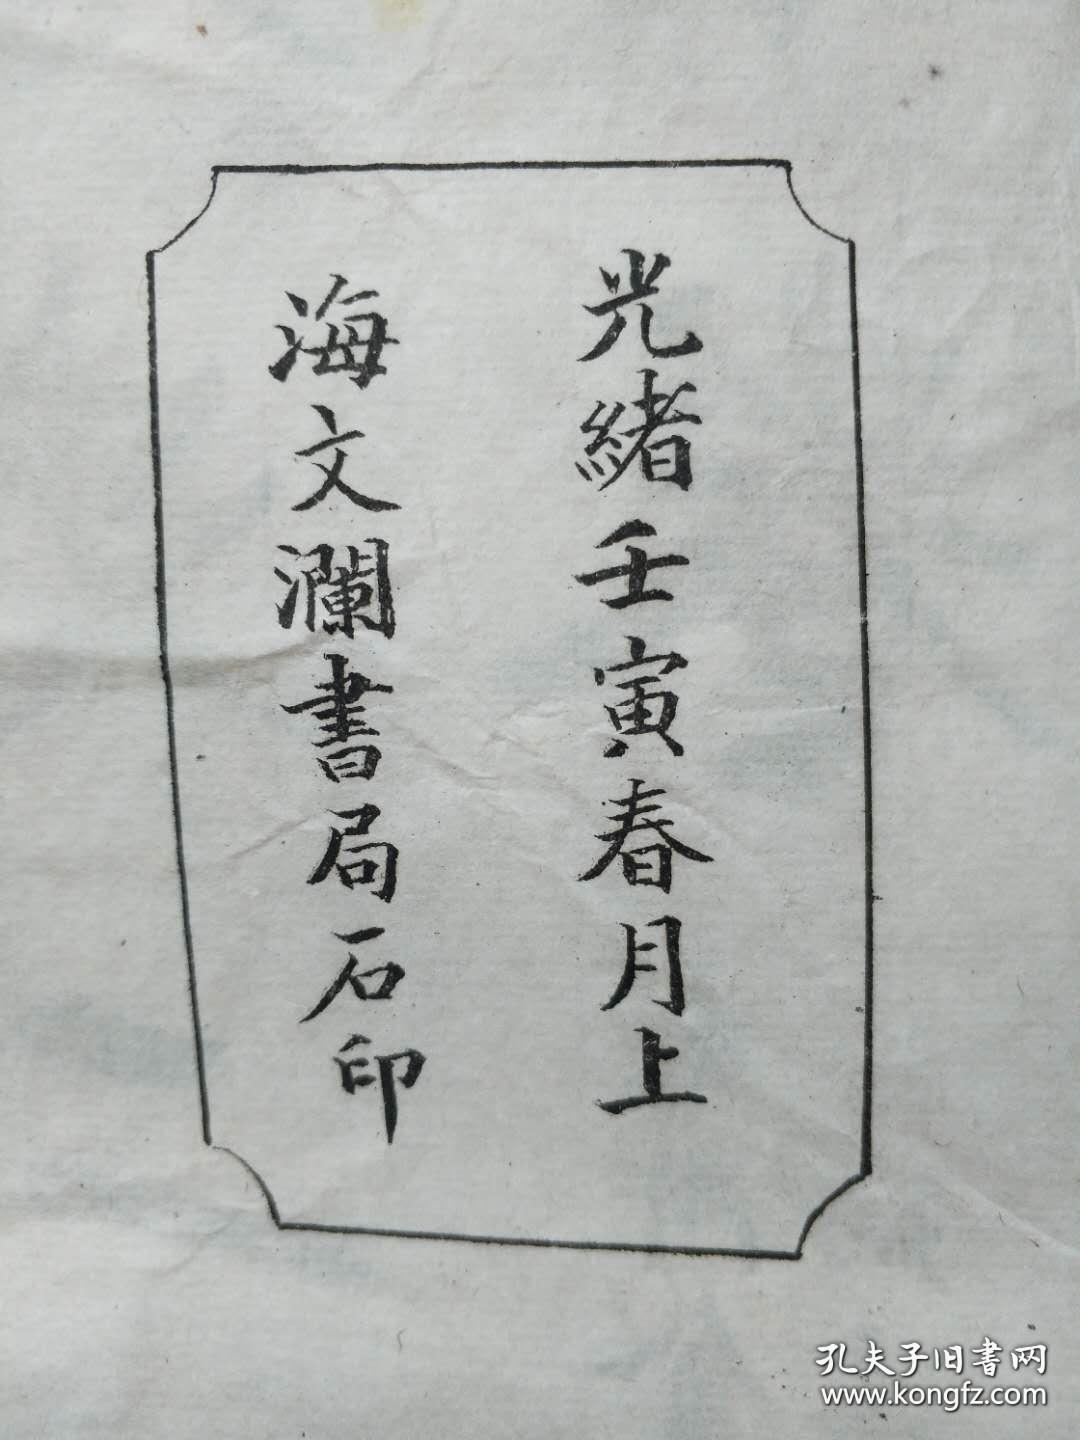 光緒壬寅春月上
海文瀾書局石印
孔夫子旧書网
www.kongfz.com